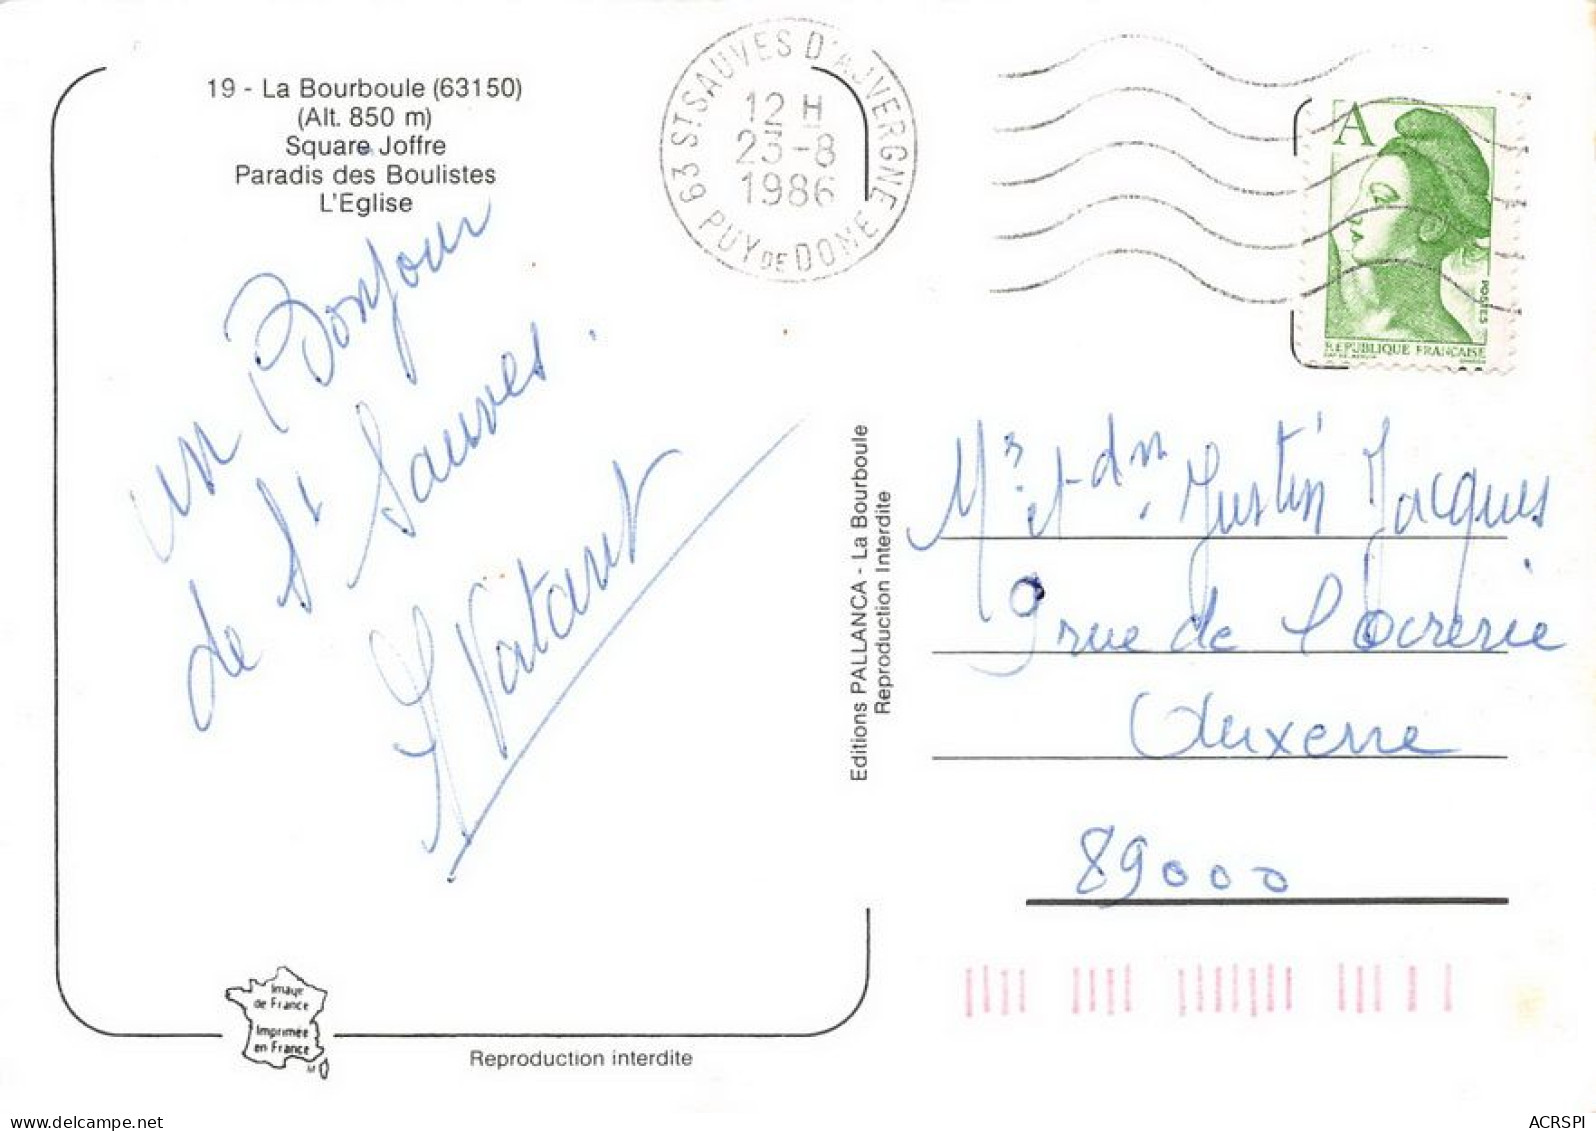 19 - La Bourboule (63150)
(Alt. 850 m)
Square Joffre
Paradis des Boulistes
L'Eglise
un Bonjour
de St Sauves.
63 ST SAUVES D'AUVERGNE
12 H
23-8
1986
PUY DE DOME
A
POSTES
REPUBLIQUE FRANÇAISE
Editions PALLANCA - La Bourboule
Reproduction Interdite
Mr et dm. Justin Jacques
9 rue de l'ocrerie
Auxerre
89000
Image
de France
Imprimée
en France
Reproduction interdite
www.delcampe.net
ACRSPI